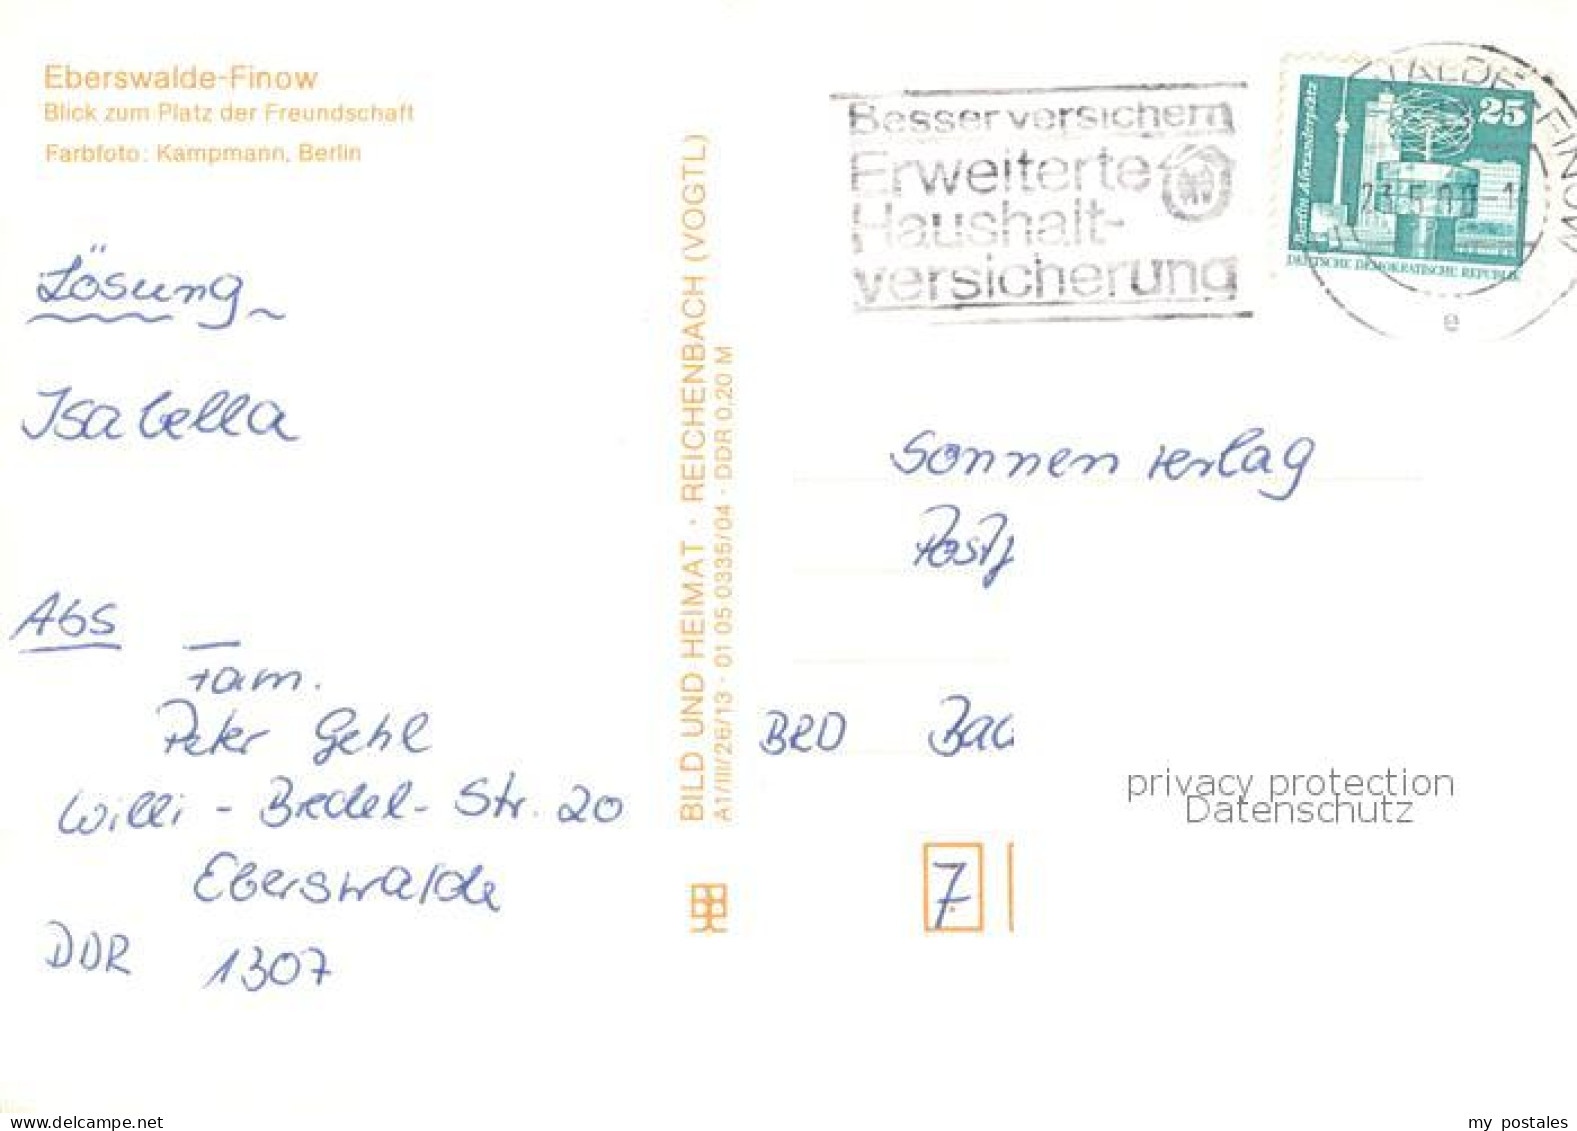 Eberswalde-Finow
Blick zum Platz der Freundschaft
Farbfoto: Kampmann, Berlin
Lösung
Isabella
Abs
Fam.
Peter Gehl
Willi - Bredel - Str. 20
Eberswalde
DDR 1307
BILD UND HEIMAT · REICHENBACH (VOGTL)
A1/III/26/13 · 01 05 0335/04 · DDR 0,20 M
Besser versichern
Erweiterte
Haushalt-
versicherung
25
Berlin, Alexanderplatz
DEUTSCHE DEMOKRATISCHE REPUBLIK
WALDE-FINOW
e
Sonnenverlag
Postf
BRD Bad
privacy protection
Datenschutz
7
my postales
www.delcampe.net